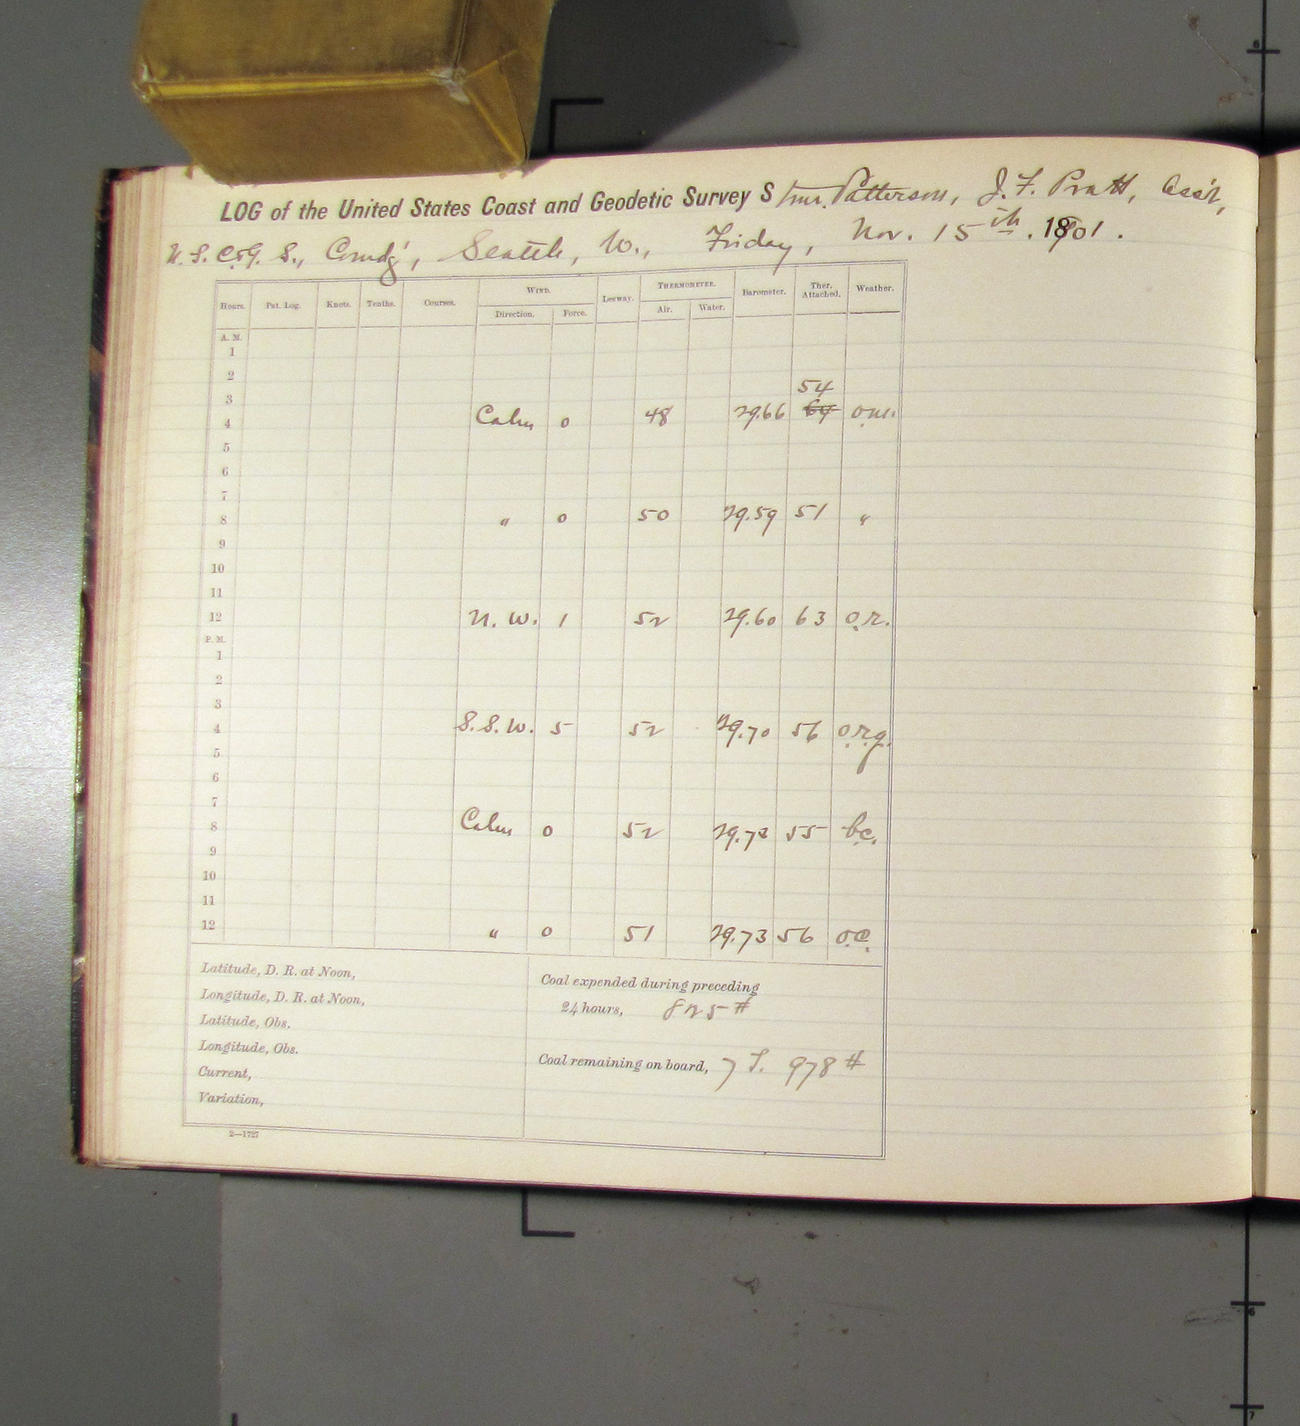 LOG of the United States Coast and Geodetic Survey Stmr. Patterson, J. F. Pratt, Ass't,
U. S. C. & G. S., Comd'g, Seattle, W., Friday, Nov. 15th. 1901.
Hours. Pat. Log. Knots. Tenths. Courses. WIND. Leeway. THERMOMETER. Barometer. Ther. Attached. Weather.
Direction. Force. Air. Water.
A. M.
1
2
3 54
4 Calm 0 48 29.66 64 o.m.
5
6
7
8 " 0 50 29.59 51 "
9
10
11
12 N. W. 1 52 29.60 63 o.r.
P. M.
1
2
3
4 S. S. W. 5 52 29.70 56 o.r.g.
5
6
7
8 Calm 0 52 29.73 55 b.c.
9
10
11
12 " 0 51 29.73 56 o.c.
Latitude, D. R. at Noon,
Longitude, D. R. at Noon,
Latitude, Obs.
Longitude, Obs.
Current,
Variation,
Coal expended during preceding
24 hours, 825 #
Coal remaining on board, 7 T. 978 #
2—1727
6
6
7